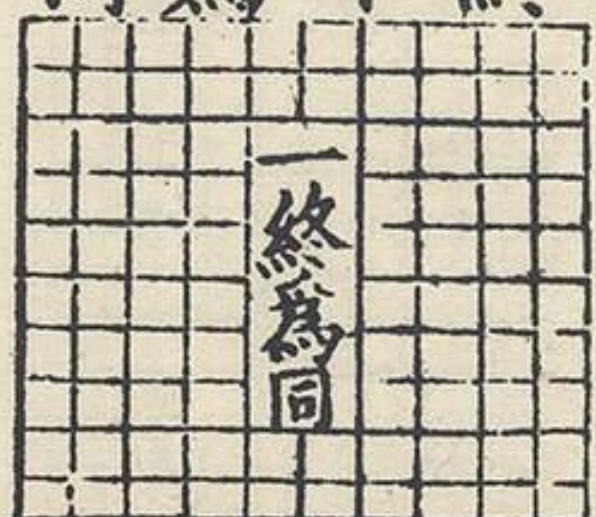 一終爲同